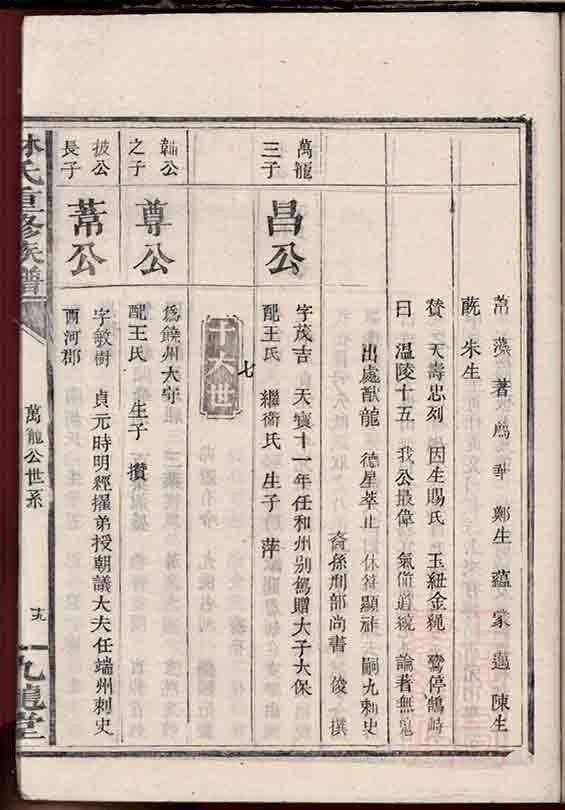 葦 藻 著 薦 曄 鄭生 蘊 蒙 邁 陳生
蔇 朱生
贊 天壽忠列 因生賜氏 玉紐金繩 鸞停鵠峙
曰 溫陵十五 我公最偉 氣值道統 論著無愧
出處猷龍 德星萃止 休符顯祚 嗣九刺史
裔孫刑部尚書 俊 撰
萬龍
三子
昌公
字茂吉 天寶十一年任和州別駕贈大子大保
配王氏 繼衛氏 生子 萍
十六世
七
韛公
之子
尊公
為饒州大守
配王氏 生子 攢
披公
長子
葦公
字敏樹 貞元時明經擢弟授朝議大夫任端州刺史
西河郡
林氏重修族譜
萬龍公世系
十九
九龍堂